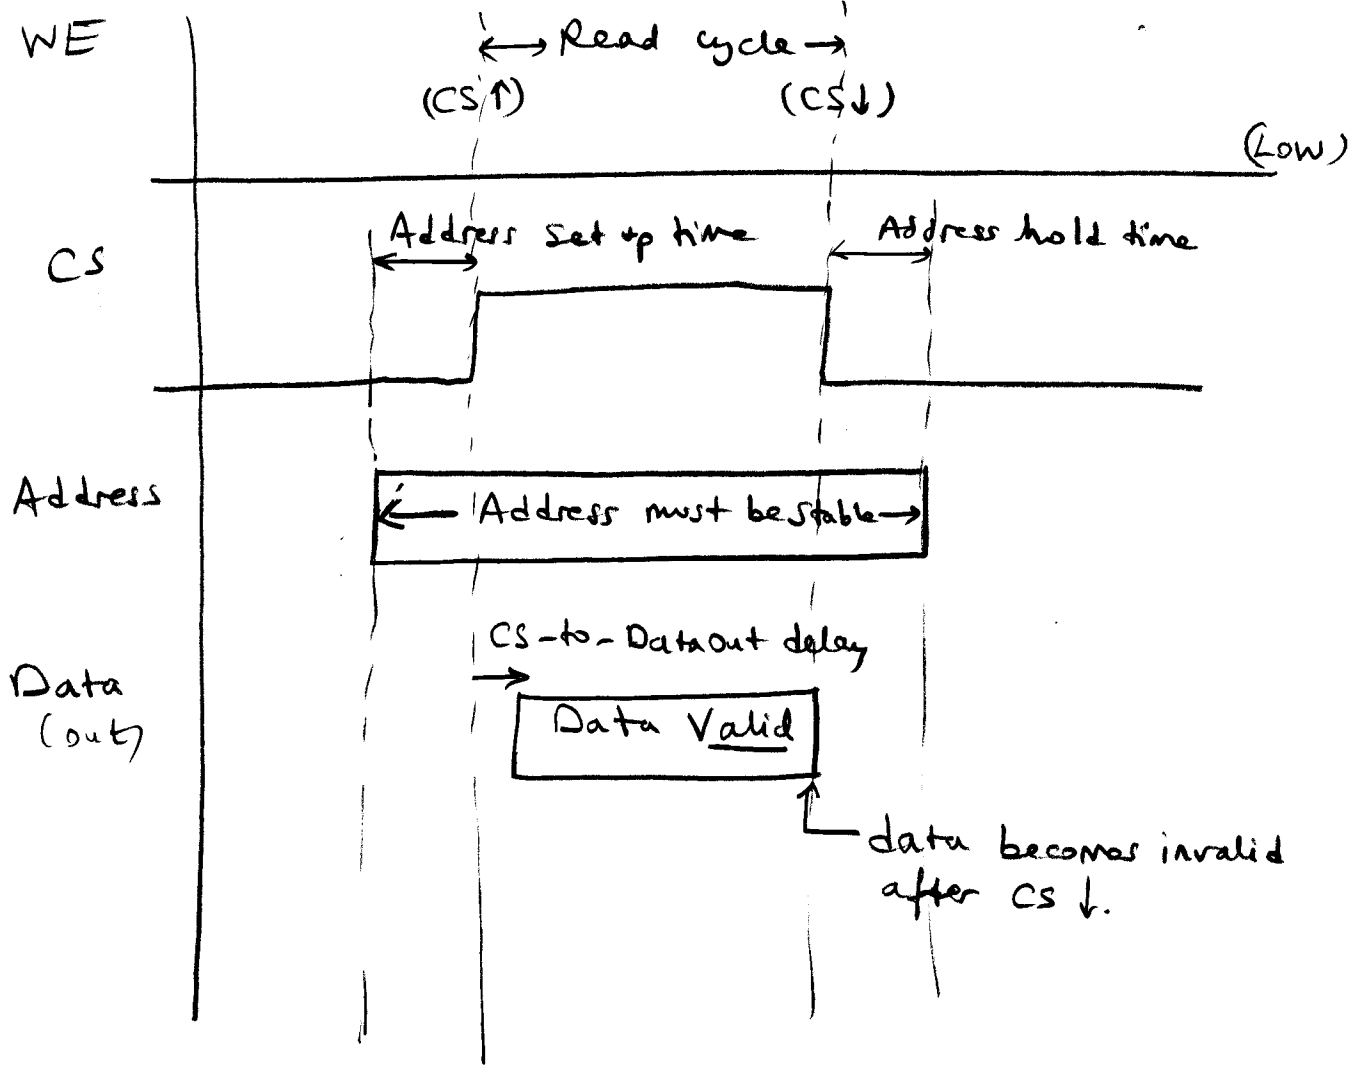 WE
Read cycle
(CS↑)
(CS↓)
(LOW)
Address set up time
Address hold time
CS
Address
Address must be stable
CS-to-Dataout delay
Data
(out)
Data Valid
data becomes invalid
after CS ↓.